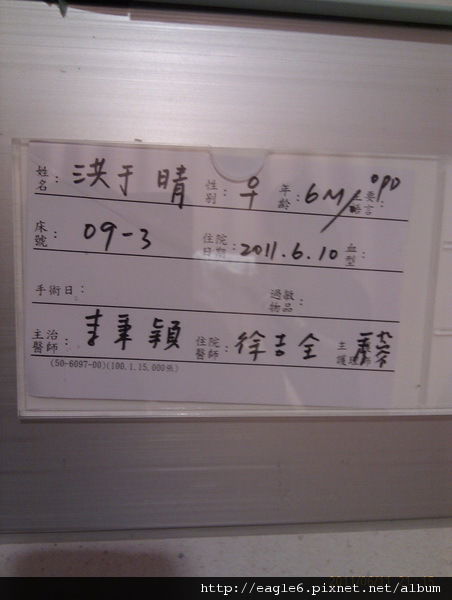 姓名： 洪于晴 性別： ♀ 年齡： 6M/ 主要語言： OPD
床號： 09-3 住院日期： 2011.6.10 血型：
手術日： 過敏物品：
主治醫師： 李秉穎 住院醫師： 徐吉全 主護理師
(50-6097-00)(100.1.15,000張)
http://eagle6.pixnet.net/album